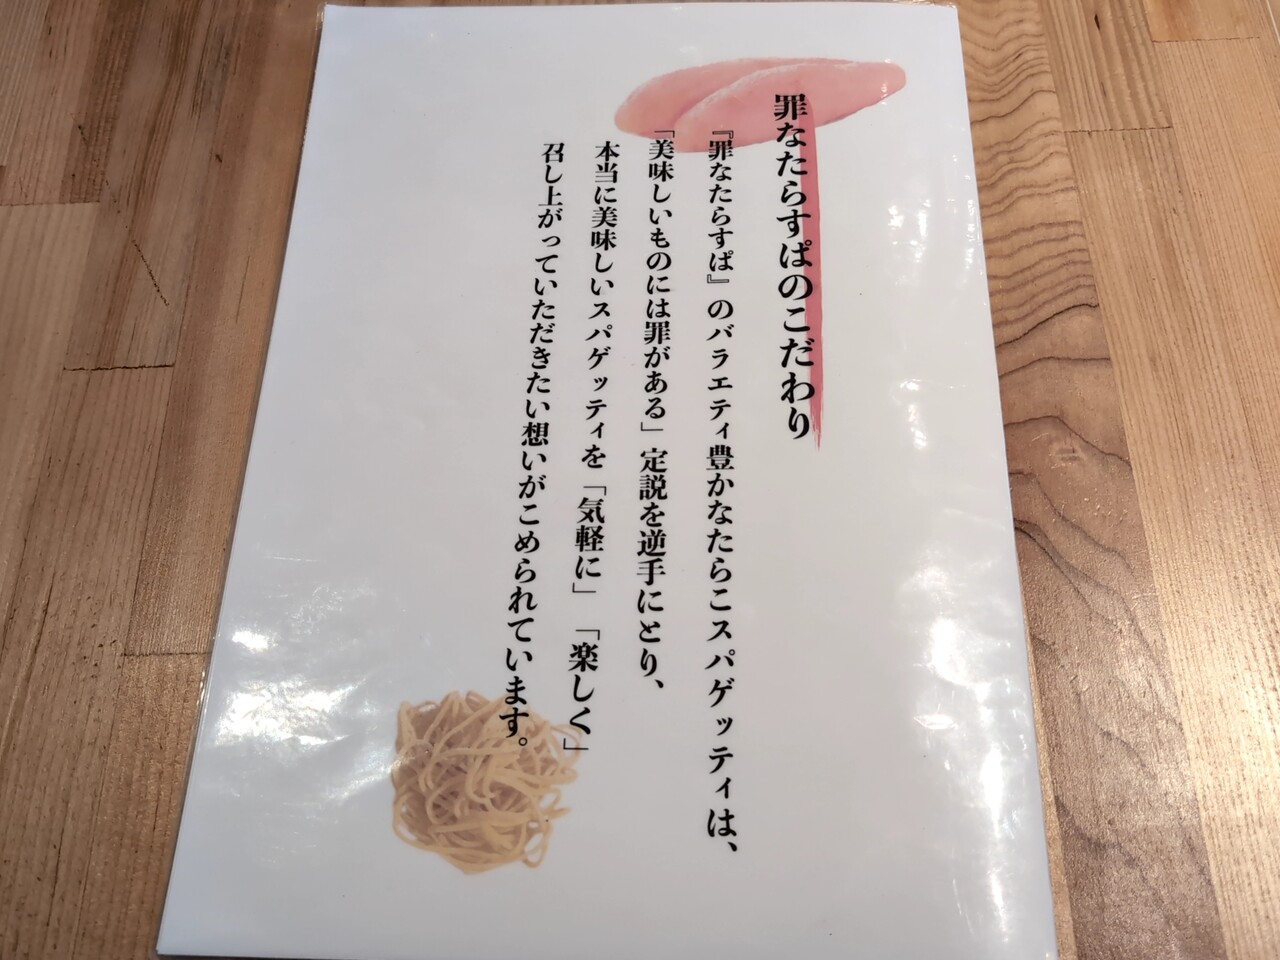 罪なたらすぱのこだわり
『罪なたらすぱ』のバラエティ豊かなたらこスパゲッティは、
「美味しいものには罪がある」定説を逆手にとり、
本当に美味しいスパゲッティを「気軽に」「楽しく」
召し上がっていただきたい想いがこめられています。